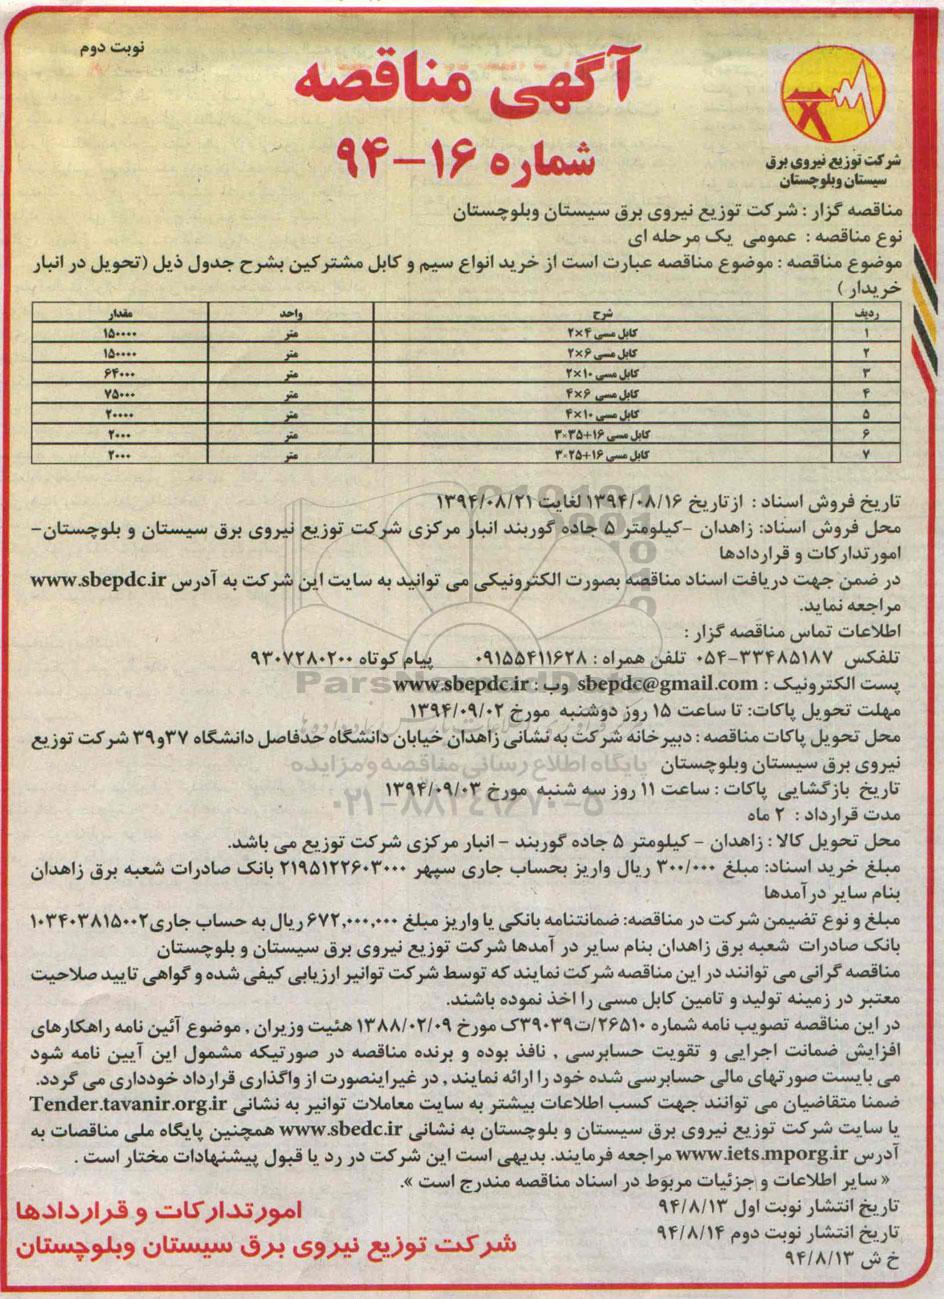 نوبت دوم
آگهی مناقصه
شماره ۱۶-۹۴
شرکت توزیع نیروی برق
سیستان وبلوچستان
مناقصه گزار : شرکت توزیع نیروی برق سیستان وبلوچستان
نوع مناقصه : عمومی یک مرحله ای
موضوع مناقصه : موضوع مناقصه عبارت است از خرید انواع سیم و کابل مشترکین بشرح جدول ذیل (تحویل در انبار
خریدار )
ردیف شرح واحد مقدار
۱ کابل مسی ۴×۲ متر ۱۵۰۰۰۰
۲ کابل مسی ۶×۲ متر ۱۵۰۰۰۰
۳ کابل مسی ۱۰×۲ متر ۶۴۰۰۰
۴ کابل مسی ۶×۴ متر ۷۵۰۰۰
۵ کابل مسی ۱۰×۴ متر ۲۰۰۰۰
۶ کابل مسی ۱۶+۳۵×۳ متر ۲۰۰۰
۷ کابل مسی ۱۶+۲۵×۳ متر ۲۰۰۰
تاریخ فروش اسناد : ازتاریخ ۱۳۹۴/۰۸/۱۶ لغایت ۱۳۹۴/۰۸/۲۱
محل فروش اسناد: زاهدان -کیلومتر ۵ جاده گوربند انبار مرکزی شرکت توزیع نیروی برق سیستان و بلوچستان-
امورتدارکات و قراردادها
در ضمن جهت دریافت اسناد مناقصه بصورت الکترونیکی می توانید به سایت این شرکت به آدرس www.sbepdc.ir
مراجعه نماید.
اطلاعات تماس مناقصه گزار :
تلفکس ۳۳۴۸۵۱۸۷-۰۵۴ تلفن همراه : ۰۹۱۵۵۴۱۱۶۲۸ پیام کوتاه ۹۳۰۷۲۸۰۲۰۰
پست الکترونیک : sbepdc@gmail.com وب : www.sbepdc.ir
مهلت تحویل پاکات: تا ساعت ۱۵ روز دوشنبه مورخ ۱۳۹۴/۰۹/۰۲
محل تحویل پاکات مناقصه : دبیرخانه شرکت به نشانی زاهدان خیابان دانشگاه حدفاصل دانشگاه ۳۷و۳۹ شرکت توزیع
نیروی برق سیستان وبلوچستان
تاریخ بازگشایی پاکات : ساعت ۱۱ روز سه شنبه مورخ ۱۳۹۴/۰۹/۰۳
مدت قرارداد : ۲ ماه
محل تحویل کالا : زاهدان - کیلومتر ۵ جاده گوربند - انبار مرکزی شرکت توزیع می باشد.
مبلغ خرید اسناد: مبلغ ۳۰۰/۰۰۰ ریال واریز بحساب جاری سپهر ۲۱۹۵۱۲۲۶۰۳۰۰۰ بانک صادرات شعبه برق زاهدان
بنام سایر درآمدها
مبلغ و نوع تضیمن شرکت در مناقصه: ضمانتنامه بانکی یا واریز مبلغ ۶۷۲,۰۰۰,۰۰۰ ریال به حساب جاری ۱۰۳۴۰۳۸۱۵۰۰۲
بانک صادرات شعبه برق زاهدان بنام سایر در آمدها شرکت توزیع نیروی برق سیستان و بلوچستان
مناقصه گرانی می توانند در این مناقصه شرکت نمایند که توسط شرکت توانیر ارزیابی کیفی شده و گواهی تایید صلاحیت
معتبر در زمینه تولید و تامین کابل مسی را اخذ نموده باشند.
در این مناقصه تصویب نامه شماره ۲۶۵۱۰/ت۳۹۰۳۹ک مورخ ۱۳۸۸/۰۲/۰۹ هئیت وزیران , موضوع آئین نامه راهکارهای
افزایش ضمانت اجرایی و تقویت حسابرسی , نافذ بوده و برنده مناقصه در صورتیکه مشمول این آیین نامه شود
می بایست صورتهای مالی حسابرسی شده خود را ارائه نمایند , در غیراینصورت از واگذاری قرارداد خودداری می گردد.
ضمنا متقاضیان می توانند جهت کسب اطلاعات بیشتر به سایت معاملات توانیر به نشانی Tender.tavanir.org.ir
یا سایت شرکت توزیع نیروی برق سیستان و بلوچستان به نشانی www.sbedc.ir همچنین پایگاه ملی مناقصات به
آدرس www.iets.mporg.ir مراجعه فرمایند. بدیهی است این شرکت در رد یا قبول پیشنهادات مختار است .
« سایر اطلاعات و جزئیات مربوط در اسناد مناقصه مندرج است ».
تاریخ انتشار نوبت اول ۹۴/۸/۱۳
تاریخ انتشار نوبت دوم ۹۴/۸/۱۴
خ ش ۹۴/۸/۱۳
امورتدارکات و قراردادها
شرکت توزیع نیروی برق سیستان وبلوچستان
ParsNamadData
پایگاه اطلاع رسانی مناقصه و مزایده
۰۲۱-۸۸۳۴۹۶۷۰-۵